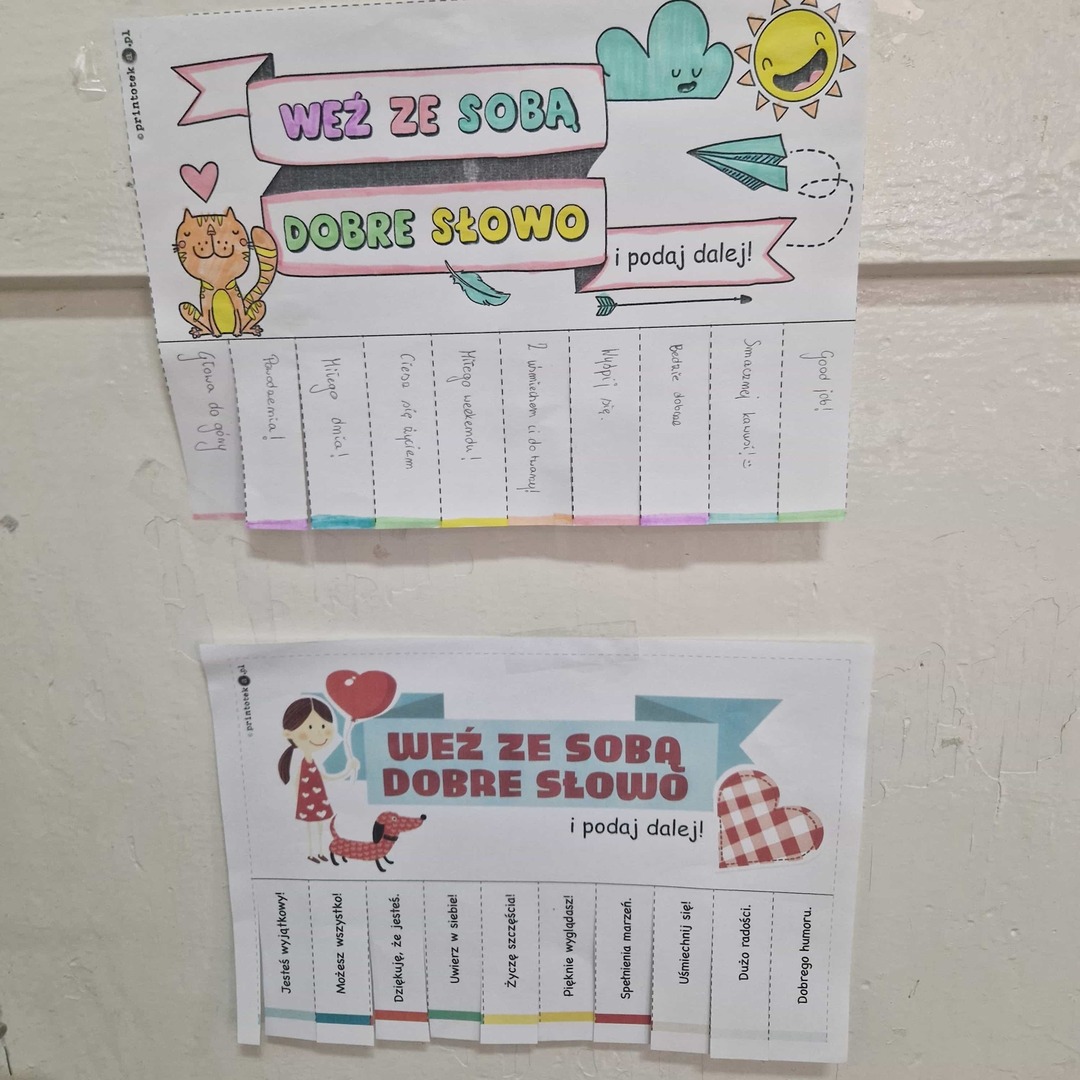 ©printoteka.pl
WEŹ ZE SOBĄ
DOBRE SŁOWO
i podaj dalej!
Głowa do góry
Powodzenia!
Miłego dnia!
Ciesz się życiem
Miłego weekendu!
Z uśmiechem ci do twarzy!
Wyśpij się.
Będzie dobrze
Smacznej kawusi! :)
Good job!
©printoteka.pl
WEŹ ZE SOBĄ
DOBRE SŁOWO
i podaj dalej!
Jesteś wyjątkowy!
Możesz wszystko!
Dziękuję, że jesteś.
Uwierz w siebie!
Życzę szczęścia!
Pięknie wyglądasz!
Spełnienia marzeń.
Uśmiechnij się!
Dużo radości.
Dobrego humoru.